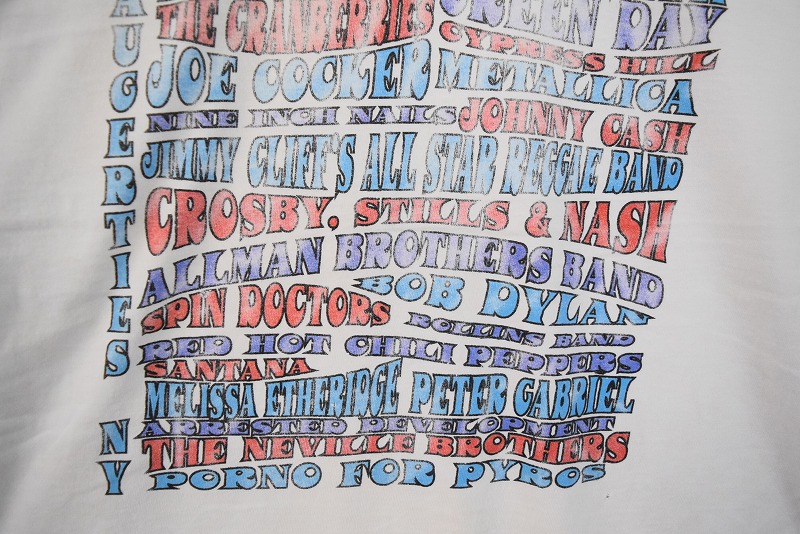 THE CRANBERRIES GREEN DAY
CYPRESS HILL
JOE COCKER METALLICA
NINE INCH NAILS JOHNNY CASH
JIMMY CLIFF'S ALL STAR REGGAE BAND
CROSBY, STILLS & NASH
ALLMAN BROTHERS BAND
BOB DYLAN
SPIN DOCTORS
ROLLINS BAND
RED HOT CHILI PEPPERS
SANTANA
MELISSA ETHERIDGE PETER GABRIEL
ARRESTED DEVELOPMENT
THE NEVILLE BROTHERS
PORNO FOR PYROS
AUGERTIES NY